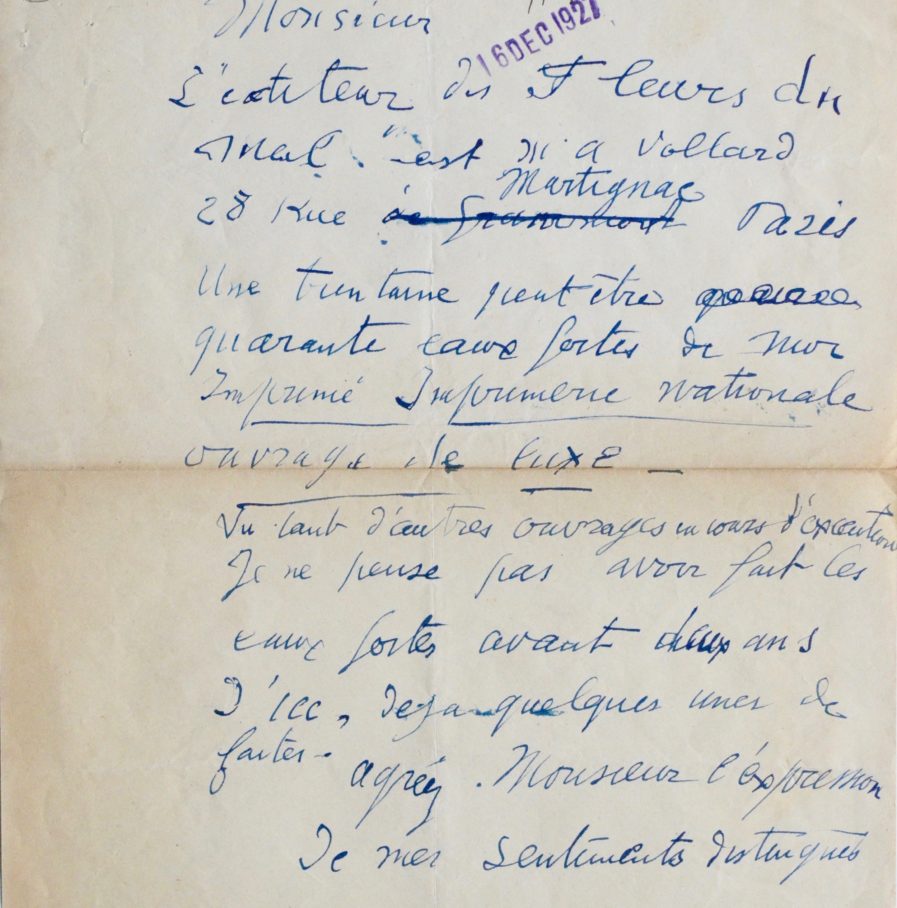 Monsieur
16 DEC 1927
L'editeur des Fleurs du
Mal" est M. A Vollard
28 Rue de Grammont Martignac Paris
Une trentaine peut être
quarante eaux fortes de moi
Imprimé Imprimerie nationale
ouvrage de luxe –
Vu tant d'autres ouvrages en cours d'execution
Je ne pense pas avoir fait les
eaux fortes avant deux ans
D'ici, deja quelques unes de
faites –
agréez. Monsieur l'expression
De mes sentiments distingués